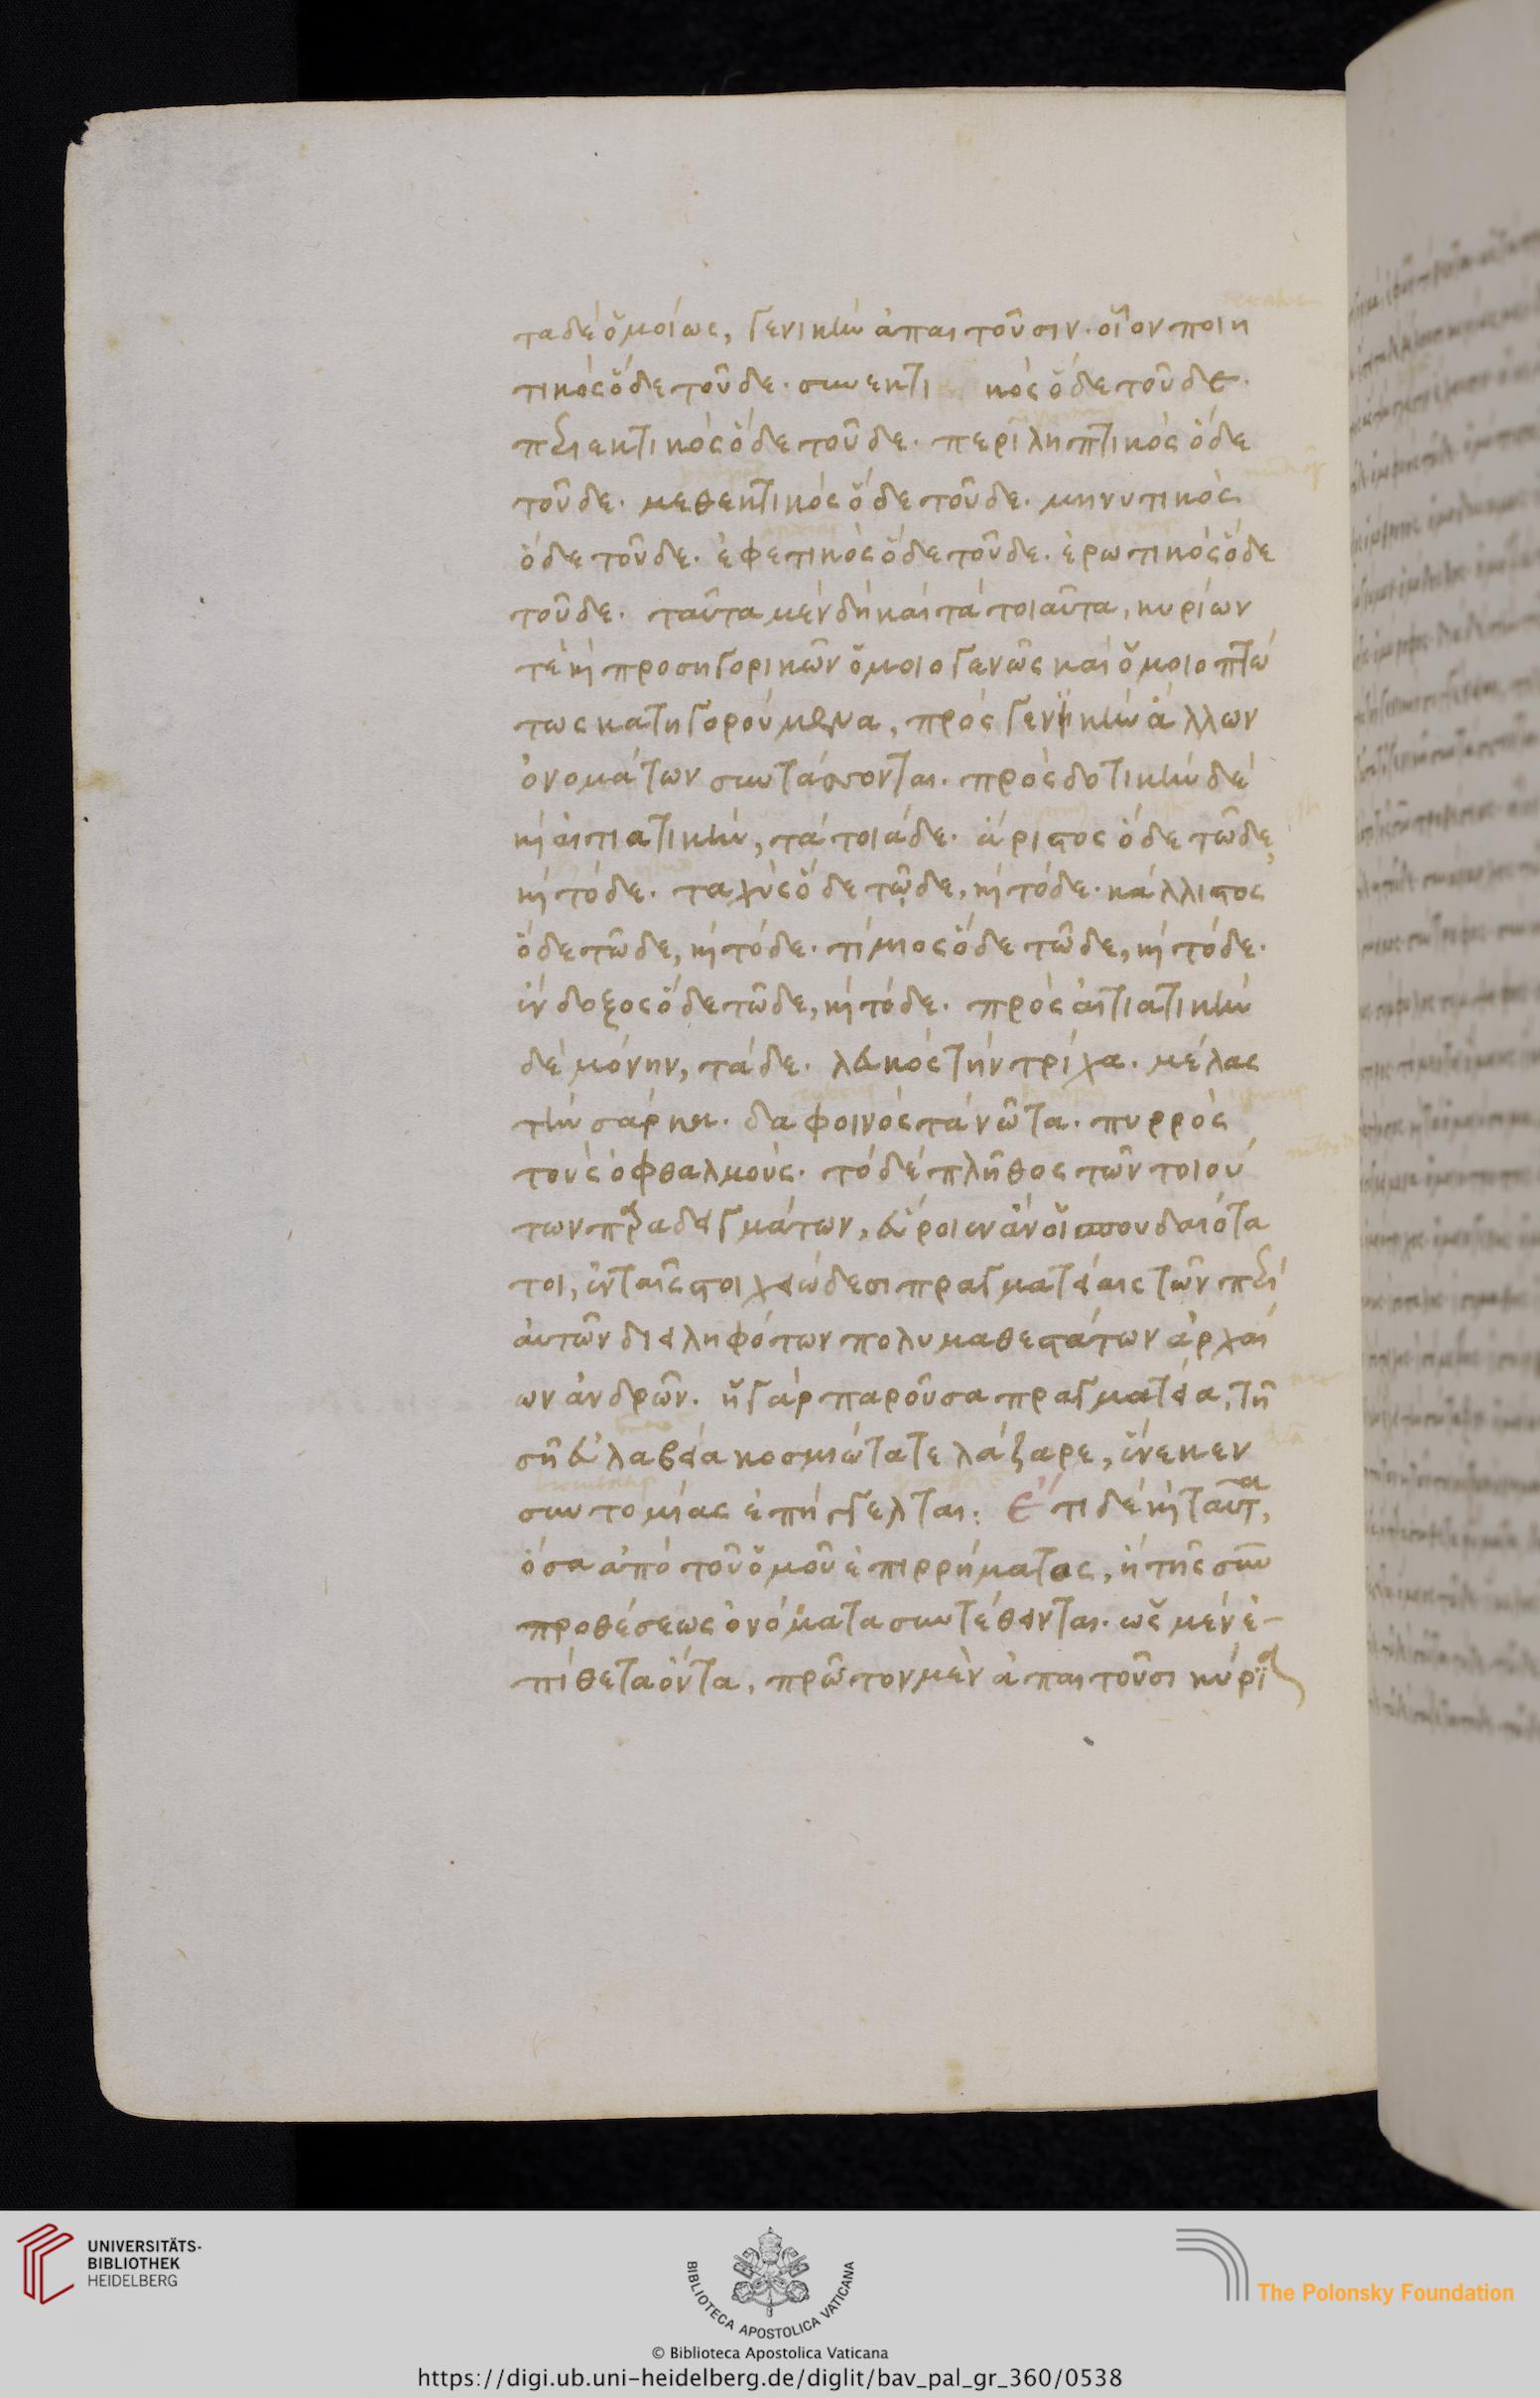 ταδὲ ὁμοίως, γενικὴν ἀπαιτοῦσιν. οἷον ποιη
τικὸς ὅδε τοῦδε. συνεκτι κὸς ὅδε τοῦδε.
περιεκτικὸς ὅδε τοῦδε. περιληπτικὸς ὅδε
τοῦδε. μεθεκτικὸς ὅδε τοῦδε. μηνυτικὸς
ὅδε τοῦδε. ἐφετικὸς ὅδε τοῦδε. ἐρωτικὸς ὅδε
τοῦδε. ταῦτα μὲν δὴ καὶ τὰ τοιαῦτα, κυρίων
τὲ καὶ προσηγορικῶν ὁμοιογενῶς καὶ ὁμοιοπτώ
τως κατηγορούμενα, πρὸς γενικὴν ἄλλων
ὀνομάτων συντάσσονται. πρὸς δοτικὴν δὲ
καὶ αἰτιατικὴν, τὰ τοιάδε. ἄριστος ὅδε τῶδε,
καὶ τόδε. ταχὺς ὅδε τῷδε, καὶ τόδε. κάλλιστος
ὅδε τῶδε, καὶ τόδε. τίμιος ὅδε τῶδε, καὶ τόδε.
ἔνδοξος ὅδε τῶδε, καὶ τόδε. πρὸς αἰτιατικὴν
δὲ μόνην, τάδε. λευκὸς τὴν τρίχα. μέλας
τὴν σάρκα. δαφοινὸς τὰ νῶτα. πυρρὸς
τοὺς ὀφθαλμούς. τὸ δὲ πλῆθος τῶν τοιού
των παραδειγμάτων, εὕροιεν ἂν οἱ σπουδαιότα
τοι, ἐν ταῖς στοιχειώδεσι πραγματείαις τῶν περὶ
αὐτῶν διειληφότων πολυμαθεστάτων ἀρχαί
ων ἀνδρῶν. ἡ γὰρ παροῦσα πραγματεία, τῇ
σῇ εὐλαβεία κοσμιώτατε λάζαρε, ἕνεκεν
συντομίας ἐπήγγελται: Ἔτι δὲ καὶ ταῦτα,
ὅσα ἀπὸ τοῦ ὁμοῦ ἐπιρρήματος, ἢ τῆς σὺν
προθέσεως ὀνόματα συντέθεινται. ὡς μὲν ἐ-
πίθετα ὄντα, πρῶτον μὲν ἀπαιτοῦσι κύρι
UNIVERSITÄTS-
BIBLIOTHEK
HEIDELBERG
BIBLIOTECA APOSTOLICA VATICANA
The Polonsky Foundation
© Biblioteca Apostolica Vaticana
https://digi.ub.uni-heidelberg.de/diglit/bav_pal_gr_360/0538